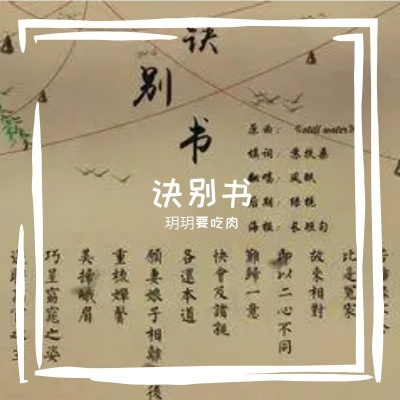 诀
别
书
诀别书
玥玥要吃肉
原曲：《still water》
填词：
翻唱：
后期：
海报：
比是冤家
故來相對
即以二心不同
難歸一意
快會及諸親
各還本道
願妻娘子相離之後
重梳嬋鬢
美掃娥眉
巧呈窈窕之姿